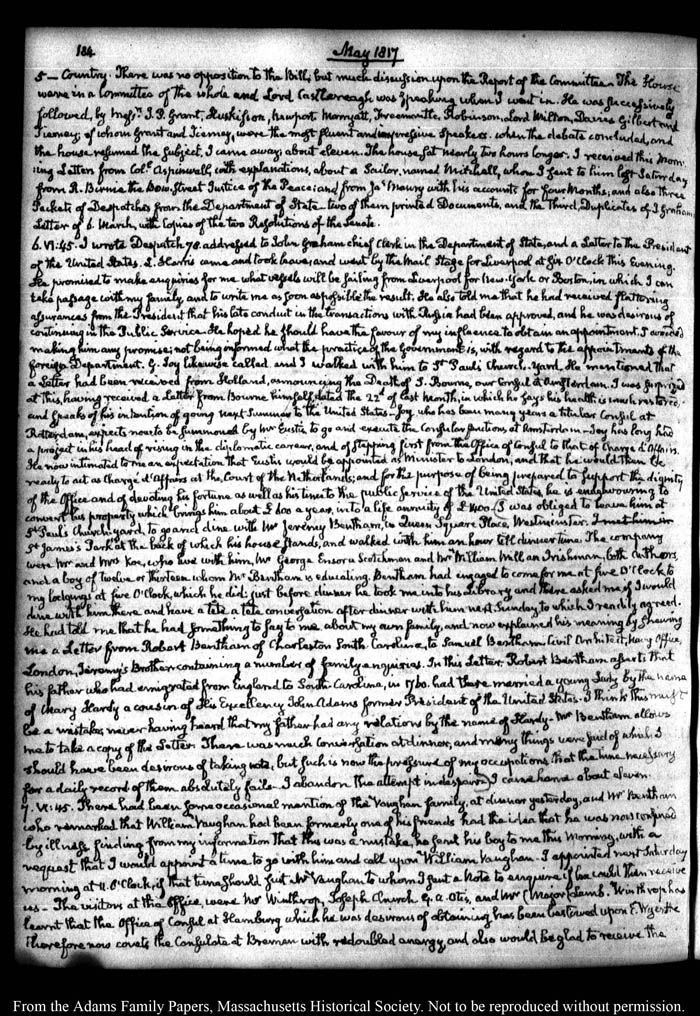 184
May 1817
5 — Country. There was no opposition to the Bill, but much discussion upon the Report of the Committee. The House
were in a Committee of the whole and Lord Castlereagh was speaking when I went in. He was successively
followed, by Messrs. J. P. Grant, Huskisson, Newport Marryatt, Freemantle, Robinson, Lord Milton, Davies Gilbert and
Tierney; of whom Grant and Tierney, were the most fluent and impressive speakers. When the debate concluded, and
the house resumed the subject, I came away about eleven. The house sat nearly two hours longer. I received this Morn-
ing Letters from Coll. Aspinwall, with explanations, about a Sailor, named Mitchell, whom I sent to him last Saturday
from R. Birnie the Bow Street Justice of the Peace; and from Jas. Maury with his accounts for four Months; and also three
Packets of Despatches from the Department of State — two of them printed Documents, and the Third, Duplicates of J. Graham's
Letter of 6. March, with Copies of the two Resolutions of the Senate.
6. VI:45. I wrote Despatch 70. addressed to John Graham chief Clerk in the Department of State, and a Letter to the President
of the United States. L. Harris came and took leave; and went by the Mail Stage for Liverpool at six O'Clock this Evening.
He promised to make enquiries for me what vessels will be sailing from Liverpool for New-York or Boston, in which I can
take passage with my family, and to write me as soon as possible the result. He also told me that he had received flattering
assurances from the President that his late conduct in the transactions with Russia had been approved, and he was desirous of
continuing in the Public Service. He hoped he should have the favour of my influence to obtain an appointment. I avoided
making him any promise; not being informed what the practice of the Government is, with regard to the appointments of the
foreign Department. G. Joy likewise called and I walked with him to St. Paul's Church-Yard. He mentioned that
a Letter had been received from Holland, announcing the Death of S. Bourne, our Consul at Amsterdam. I was surprized
at this having received a Letter from Bourne himself dated the 22d. of last Month, in which he says his health is much restored,
and speaks of his intention of going next Summer to the United States — Joy, who has been many years a titular Consul at
Rotterdam, expects now to be summoned by Mr Eustis to go and execute the Consular functions at Amsterdam — Joy has long had
a project in his head of rising in the diplomatic career, and of stepping first from the Office of Consul to that of Chargé d'Affairs.
He now intimated to me an expectation that Eustis would be appointed as Minister to London, and that he would then be
ready to act as Chargé d'Affairs at the Court of the Netherlands; and for the purpose of being prepared to support the dignity
of the Office and of devoting his fortune as well as his time to the public Service of the United States, he is endeavouring to
convert his property which brings him about £600 a year, into a life annuity of £1400. I was obliged to leave him at
St. Paul's Churchyard to go and dine with Mr Jeremy Bentham, in Queen Square Place, Westminster. I met him in
St James's Park at the back of which his house stands, and walked with him an hour till dinner time. The company
were Mr and Mrs Koe, who live with him, Mr George Ensor a Scotchman and Mr William Will an Irishman, both authors,
and a boy of twelve or thirteen whom Mr Bentham is educating. Bentham had engaged to come for me at five O'Clock to
my lodgings at five O'Clock, which he did: just before dinner he took me into his Library and there asked me if I would
dine with him there and have a tête à tête conversation after dinner with him next Sunday to which I readily agreed.
He had told me that he had something to say to me about my own family, and now explained his meaning by shewing
me a Letter from Robert Bentham of Charleston South Carolina, to Samuel Bentham Civil Architect, Navy Office,
London, Jeremy's Brother containing a number of family enquiries. In this Letter, Robert Bentham asserts that
his father who had emigrated from England to South-Carolina, in 1760. had there married a young Lady by the name
of Mary Hardy a cousin of His Excellency John Adams former President of the United States. I think this must
be a mistake, never having heard that my father had any relations by the name of Hardy — Mr Bentham allows
me to take a copy of the Letter. There was much conversation at dinner, and many things were said of which I
should have been desirous of taking note, but such is now the pressure of my occupations, that the time necessary
for a daily record of them absolutely fails — I abandon the attempt in despair. I came home about eleven.
7. VI:45. There had been some occasional mention of the Vaughan family, at dinner yesterday, and Mr Bentham
who remarked that William Vaughan had been formerly one of his friends had the idea that he was now confined
by illness. Finding from my information that this was a mistake, he sent his boy to me this Morning, with a
request that I would appoint a time to go with him and call upon William Vaughan. I appointed next Saturday
morning at 11. O'Clock, if that time should suit Mr Vaughan to whom I sent a Note to enquire if he could then receive
us — The visitors at the Office, were Mr Winthrop, Joseph Church, G. A. Otis, and Mr (Major) Lamb. Winthrop has
learnt that the Office of Consul at Hamburg which he was desirous of obtaining has been bestowed upon E. Wyer. He
therefore now covets the Consulate at Bremen with redoubled energy, and also would be glad to receive the
From the Adams Family Papers, Massachusetts Historical Society. Not to be reproduced without permission.